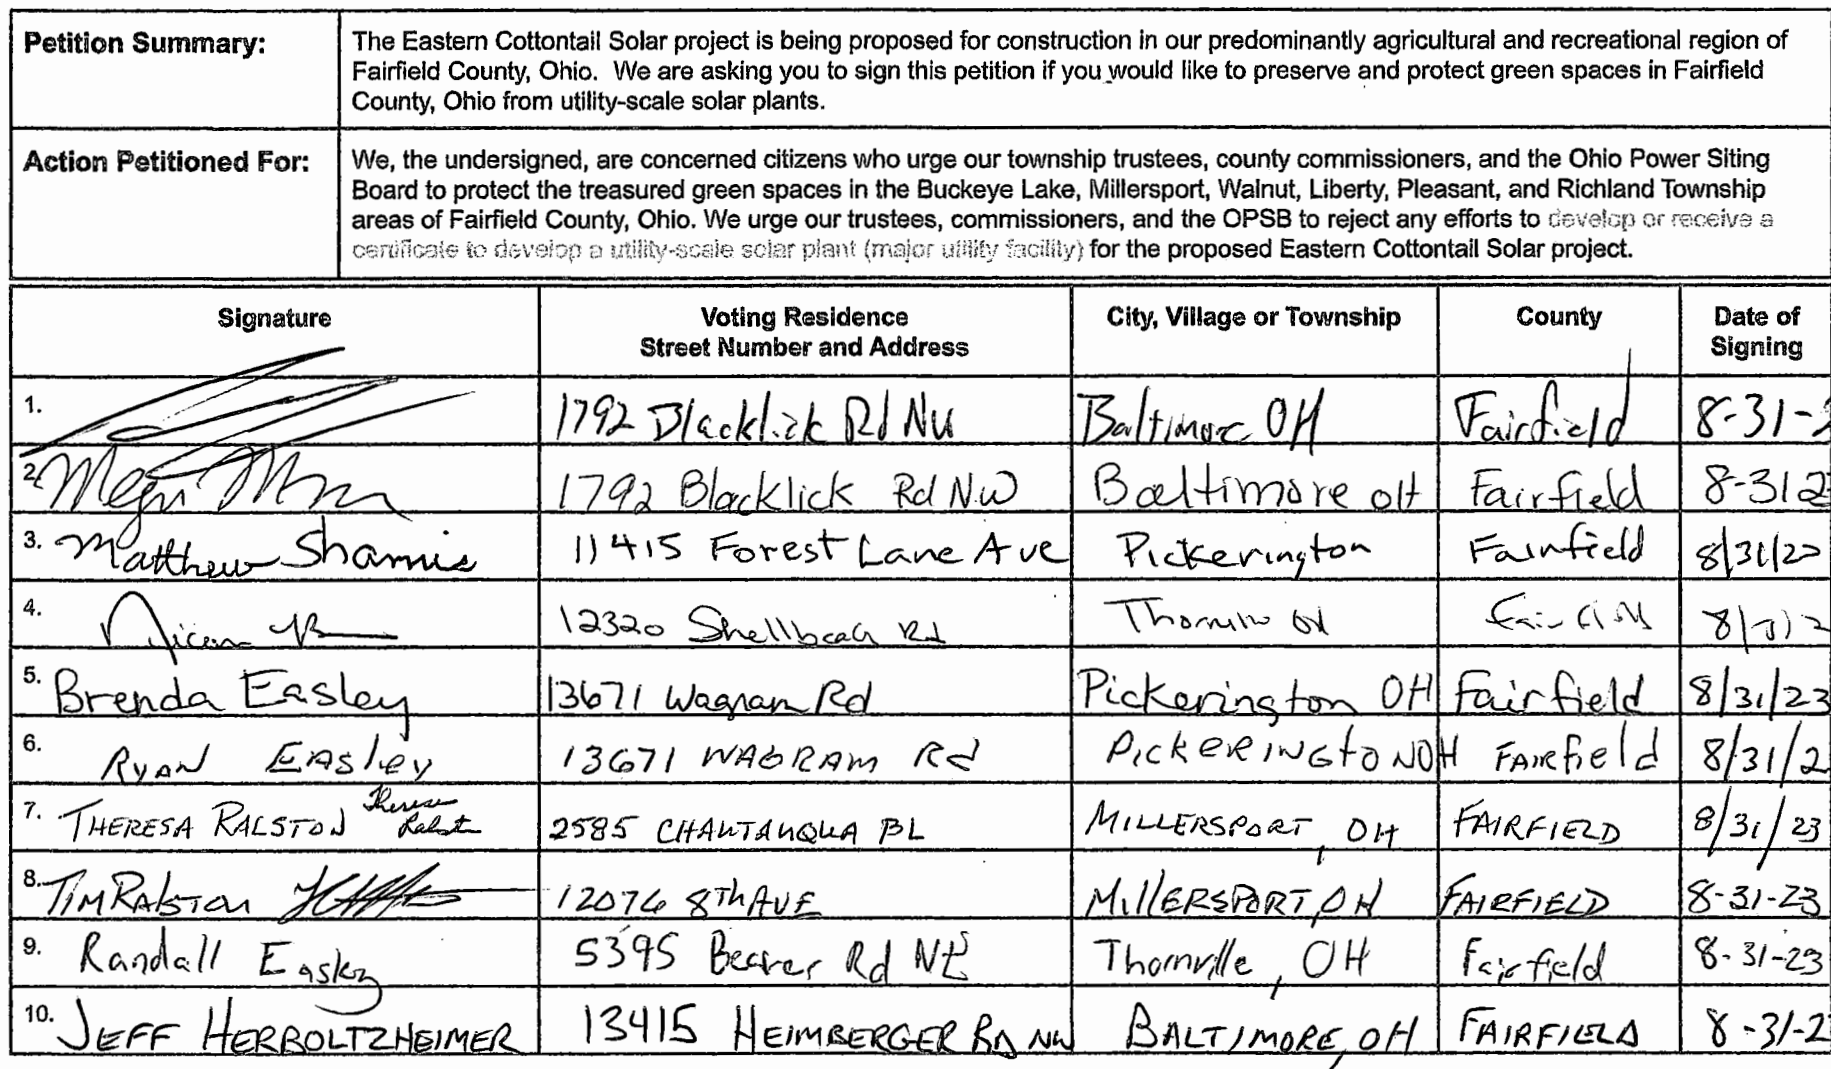 Petition Summary:
The Eastern Cottontail Solar project is being proposed for construction in our predominantly agricultural and recreational region of
Fairfield County, Ohio. We are asking you to sign this petition if you would like to preserve and protect green spaces in Fairfield
County, Ohio from utility-scale solar plants.
Action Petitioned For:
We, the undersigned, are concerned citizens who urge our township trustees, county commissioners, and the Ohio Power Siting
Board to protect the treasured green spaces in the Buckeye Lake, Millersport, Walnut, Liberty, Pleasant, and Richland Township
areas of Fairfield County, Ohio. We urge our trustees, commissioners, and the OPSB to reject any efforts to develop or receive a
certificate to develop a utility-scale solar plant (major utility facility) for the proposed Eastern Cottontail Solar project.
Signature Voting Residence City, Village or Township County Date of
Street Number and Address Signing
1. 1792 Blacklick Rd NW Baltimore, OH Fairfield 8-31-2
2. 1792 Blacklick Rd NW Baltimore OH Fairfield 8-31 2
3. Matthew Shamis 11415 Forest Lane Ave Pickerington Fairfield 8/31/23
4. 12320 Rd OH 8/
5. Brenda Easley 13671 Wagram Rd Pickerington OH Fairfield 8/31/23
6. RYAN EASley 13671 WAGRAM Rd PICKERINGtON OH FAIRfield 8/31/2
7. THERESA RALSTON Theresa Ralston 2585 CHAUTAUQUA BL MILLERSPORT, OH FAIRFIELD 8/31/23
8. TIM RALSTON 12076 8Th AVE MillERSPORT, OH FAIRFIELD 8-31-23
9. Randall Easley 5395 Beaver Rd NE Thornville, OH Fairfield 8-31-23
10. JEFF HERBOLTZHEIMER 13415 HEIMBERGER RD NW BALTIMORE, OH FAIRFIELD 8-31-2